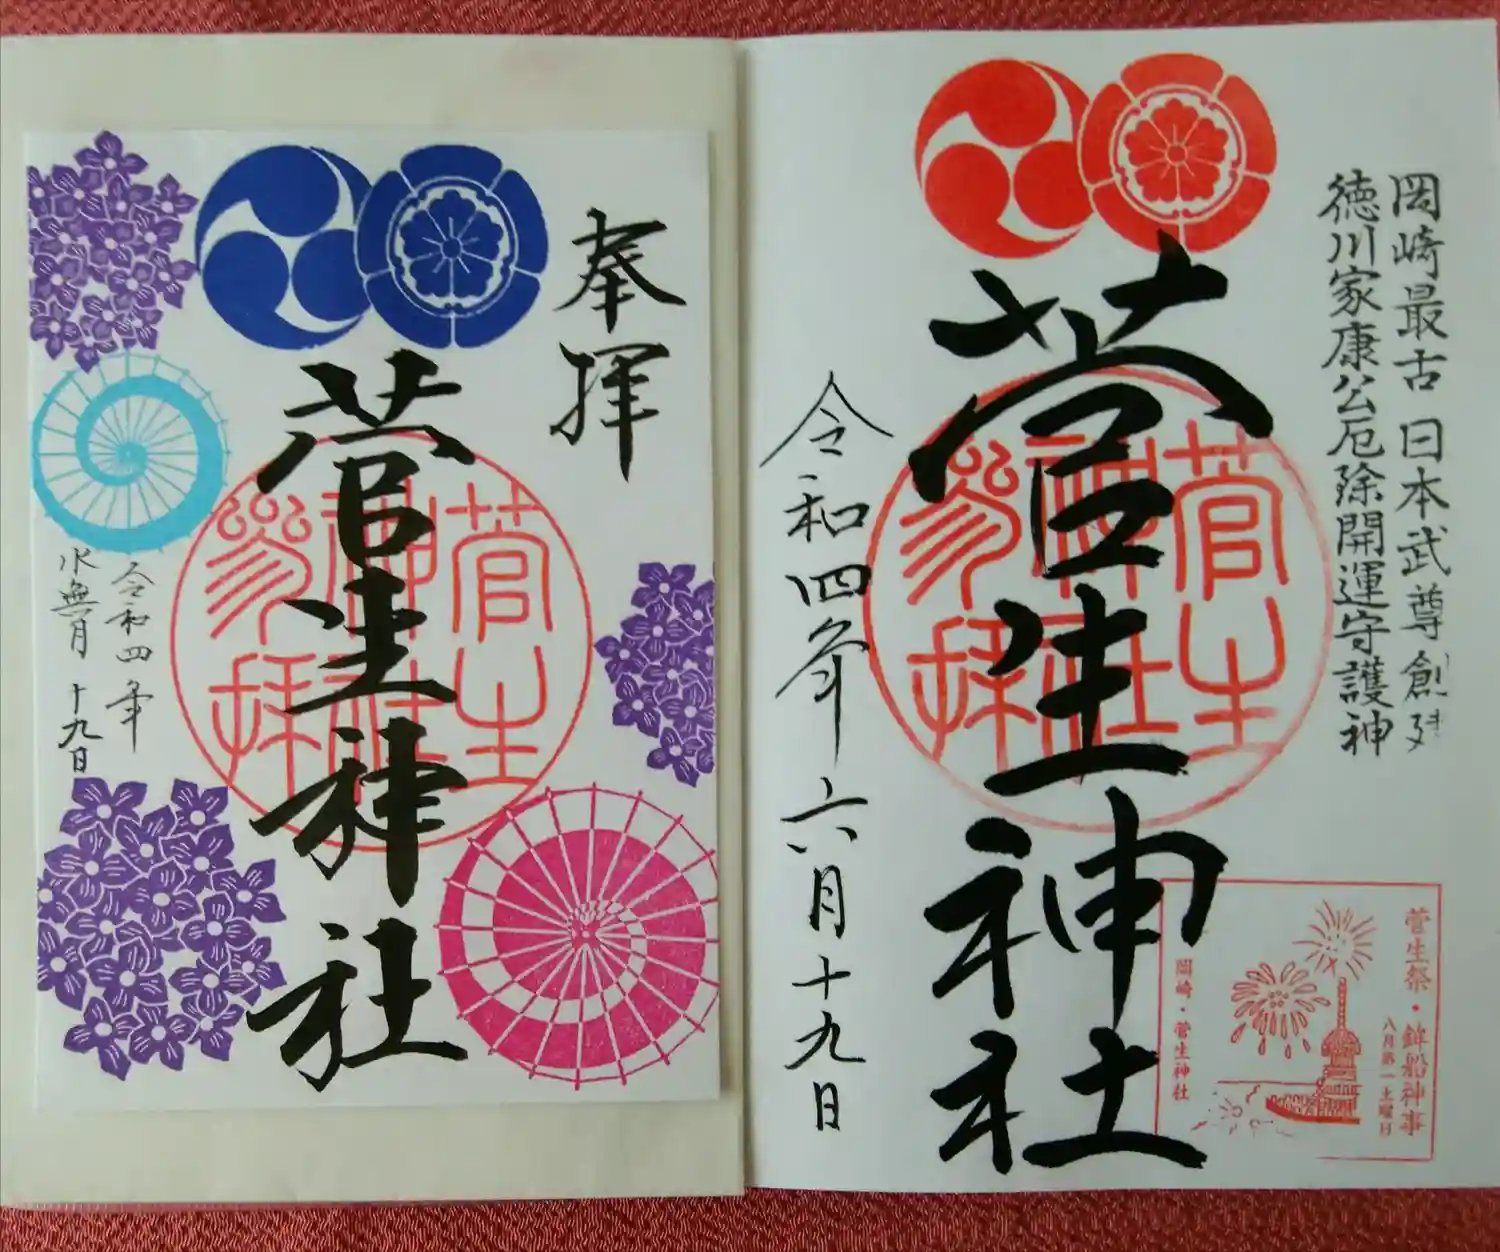 岡崎最古 日本武尊創建
徳川家康公厄除開運守護神
菅生神社
菅生神社参拝
令和四年六月十九日
菅生祭・鉾船神事
八月第一土曜日
岡崎・菅生神社
奉拝
菅生神社
菅生神社参拝
令和四年
水無月 十九日